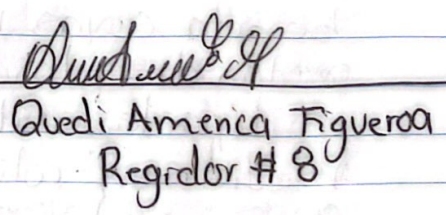 Quedi America Figueroa
Regidor # 8